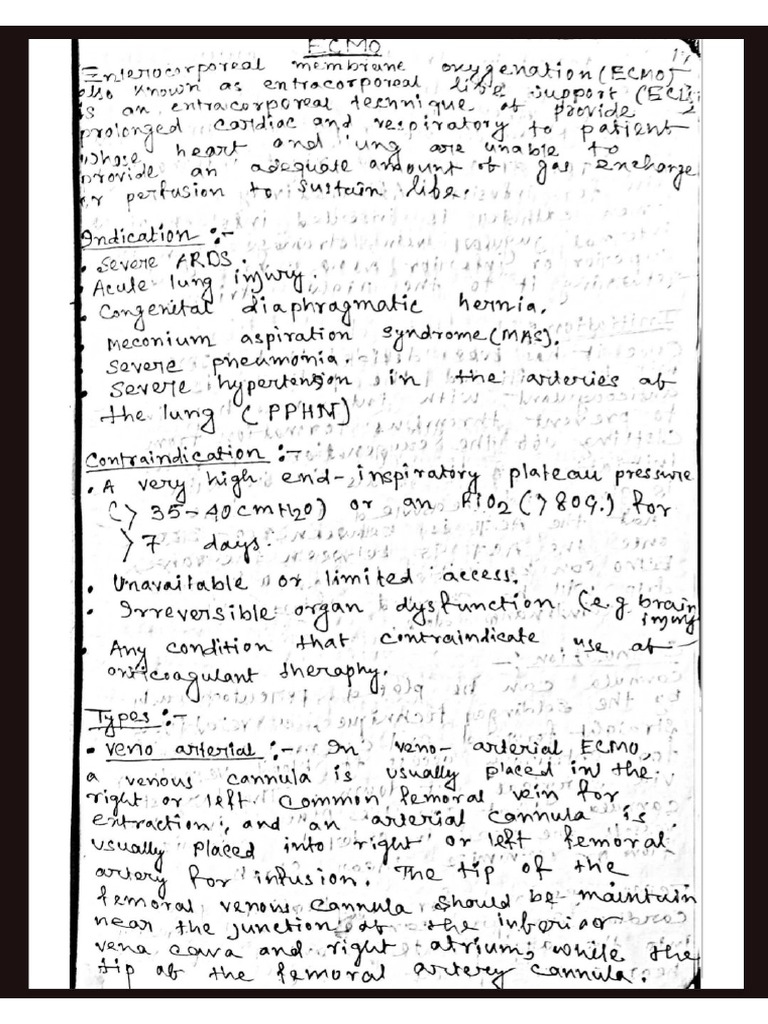 ECMO
Enterocorporeal membrane oxygenation (ECMO)
also known as entracorporeal life support (ECLS)
is an entracorporeal technique of provide
prolonged cardiac and respiratory to patient
whose heart and lung are unable to
provide an adequate amount of gas exchange
or perfusion to sustain life.
Indication :-
• Severe ARDS.
• Acute lung injury.
• Congenital diaphragmatic hernia.
• Meconium aspiration syndrome (MAS).
• Severe pneumonia.
• Severe hypertension in the arteries of
the lung (PPHN)
Contraindication :-
• A very high end-inspiratory plateau pressure
(> 35-40cmH2O) or an FiO2 (> 80%.) for
> 7 days.
• Unavailable or limited access.
• Irreversible organ dysfunction (e.g brain
injury
• Any condition that contraindicate use of
anticoagulant theraphy.
Types :-
• veno arterial :- In veno-arterial ECMO,
a venous cannula is usually placed in the
right or left common femoral vein for
extraction, and an arterial cannula is
usually placed into right or left femoral
artery for infusion. The tip of the
femoral venous cannula should be maintain
near the junction of the inferior
vena cava and right atrium, while the
tip of the femoral artery cannula.